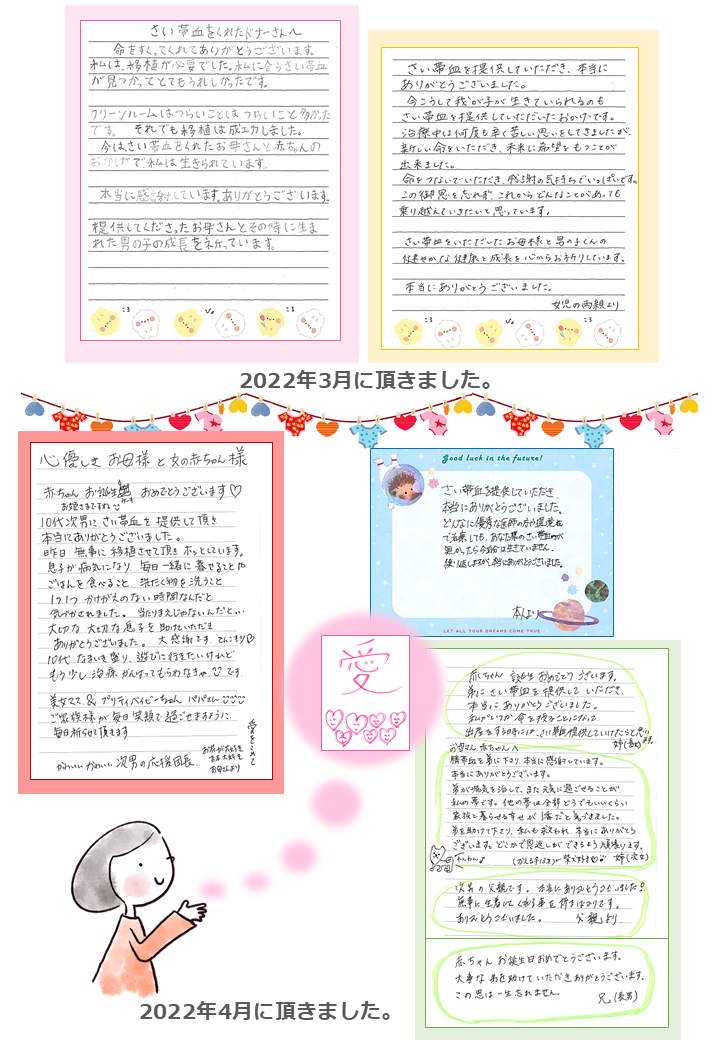 さい帯血をくれたドナーさんへ
命をすくってくれてありがとうございます。
私は、移植が必要でした。私に合うさい帯血
が見つかってとてもうれしかったです。
クリーンルームはつらいことはつらいこと多かった
です。それでも移植は成工力しました。
今は、さい帯血をくれたお母さんと赤ちゃんの
おかげで、私は生きられています。
本当に感謝しています。ありがとうございます。
提供してくださったお母さんとその時に生ま
れた男の子の成長をネ斤っています。
さい帯血を提供していただき、本当に
ありがとうございました。
今こうして我が子が生きていられるのも
さい帯血を提供していただいたおかげです。
治療中は何度も辛く苦しい思いをしてきましたが、
新しい命をいただき、未来に希望をもつことが
出来ました。
命をつないでいただき、感謝の気持ちでいっぱいです。
この御恩を忘れず、これからどんなことがあっても
乗り越えていきたいと思っています。
さい帯血をいただいたお母様と男の子くんの
健やかな健康と成長を心からお祈りしています。
本当にありがとうございました。
女児の両親より
2022年3月に頂きました。
心優しき お母様と女の赤ちゃん様
赤ちゃん お誕生 おめでとうございます♡
お姫さまですね
10代次男に さい帯血を 提供して頂き
本当にありがとうございました。
昨日 無事に移植させて頂き ホッとしています。
息子が病気になり 毎日一緒に暮せること
ごはんを食べること、洗たく物を洗うこと
1つ1つ かけがえのない時間なんだと
気づかされました。当たりまえじゃないんだと...
大切な 大切な 息子を助けていただき
ありがとうございました。大感謝です
10代 なまいき盛り、遊びに行きたいけれど
もう少し 治療 がんばってもらわなきゃ です
美女ママ & プリティベイビーちゃん パパさん
ご家族様が毎日笑顔で過ごせますように
毎日祈らせて頂きます
愛をこめて
かわいい かわいい 次男の応援団長
お母さんより
Good luck in the future!
さい帯血を提供していただき
本当にありがとうございました。
どんなに優秀な医師の方や環境
で治療しても、あなた様のさい帯血が
無かったら今自分は生きていません。
繰り返しますが、本当にありがとうございました。
本人より
LET ALL YOUR DREAMS COME TRUE
愛
赤ちゃん 誕生おめでとうございます。
弟にさい帯血を提供していただき、
本当にありがとうございました。
私がいつか命を授かることになって
出産をする時には、さい帯血提供していけたらと思います。
姉(長女)
お母さん 赤ちゃんへ
臍帯血を弟に下さり、本当に感謝しています。
本当にありがとうございます。
弟が病気を治して、また元気に過ごせることが、
私の夢です。他の夢は全部どうでもいいくらい
家族と暮らせる幸せが1番だと気づきました。
弟を助けて下さり、私も救われ、本当にありがとう
ございます。どこかで恩返しができるよう頑張ります。
わんわん♪
姉(次女)
次男の父親です。本当にありがとうございました。
無事に生着してくれる事を祈るばかりです。
ありがとうございました。 父親より
赤ちゃんお誕生日おめでとうございます。
大事な弟を助けていただきありがとうございます。
この恩は一生忘れません。
兄(長男)
2022年4月に頂きました。